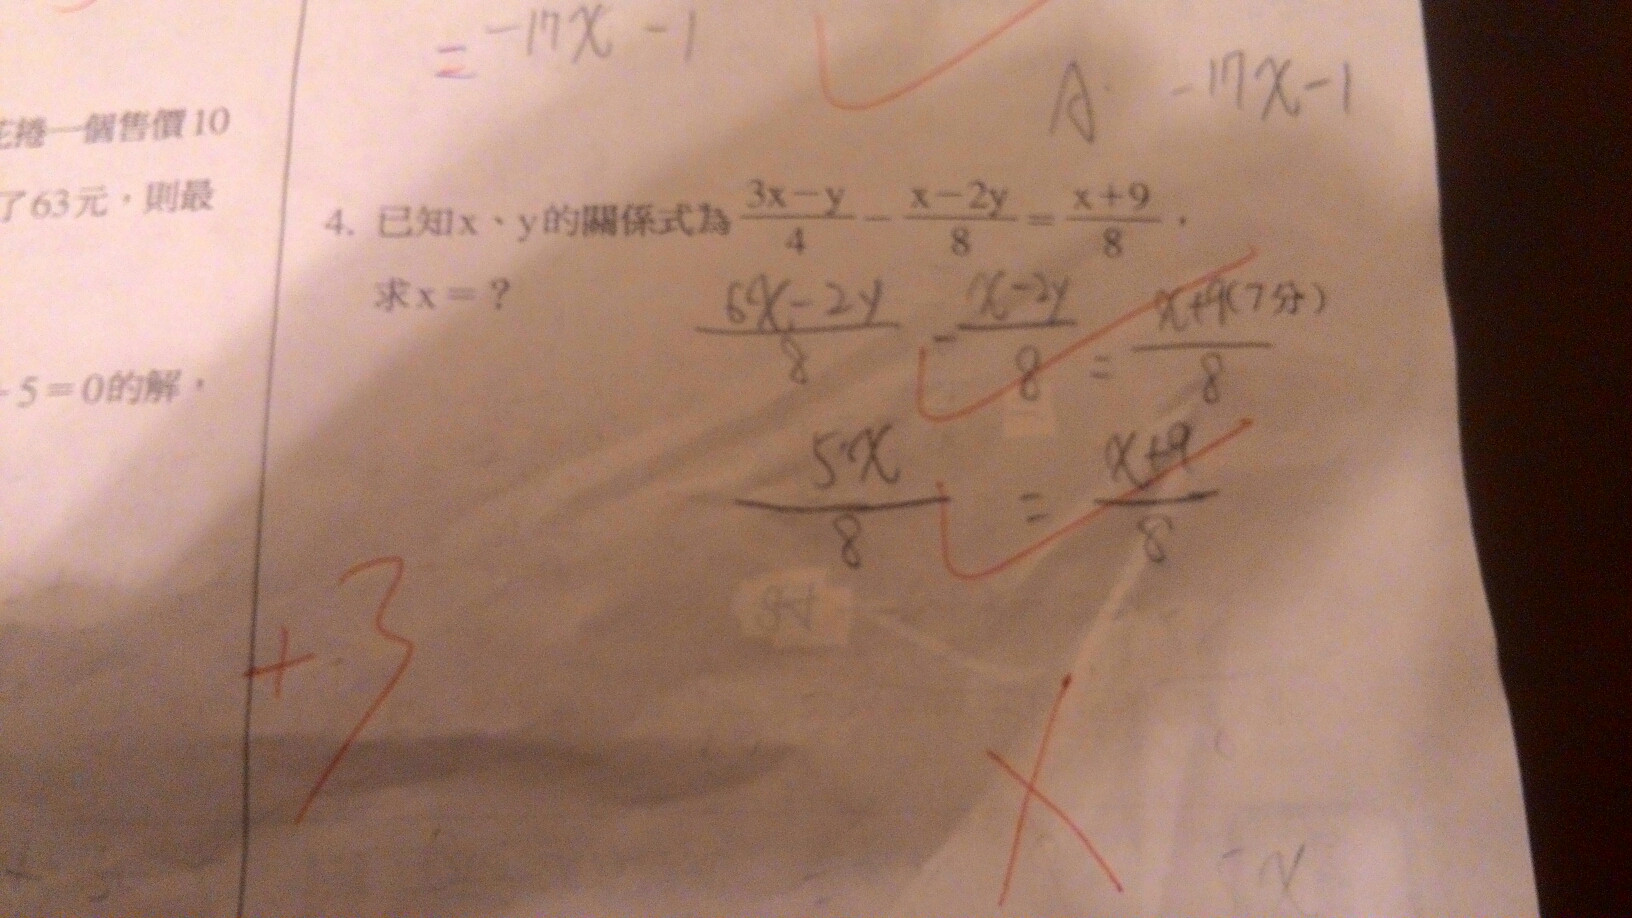 = -17x - 1
A: -17x-1
花捲一個售價10
了63元，則最
5=0的解，
4. 已知x、y的關係式為 (3x-y)/4 - (x-2y)/8 = (x+9)/8，
求x=？ (7分)
(6x-2y)/8 - (x-2y)/8 = (x+9)/8
5x/8 = (x+9)/8
+3